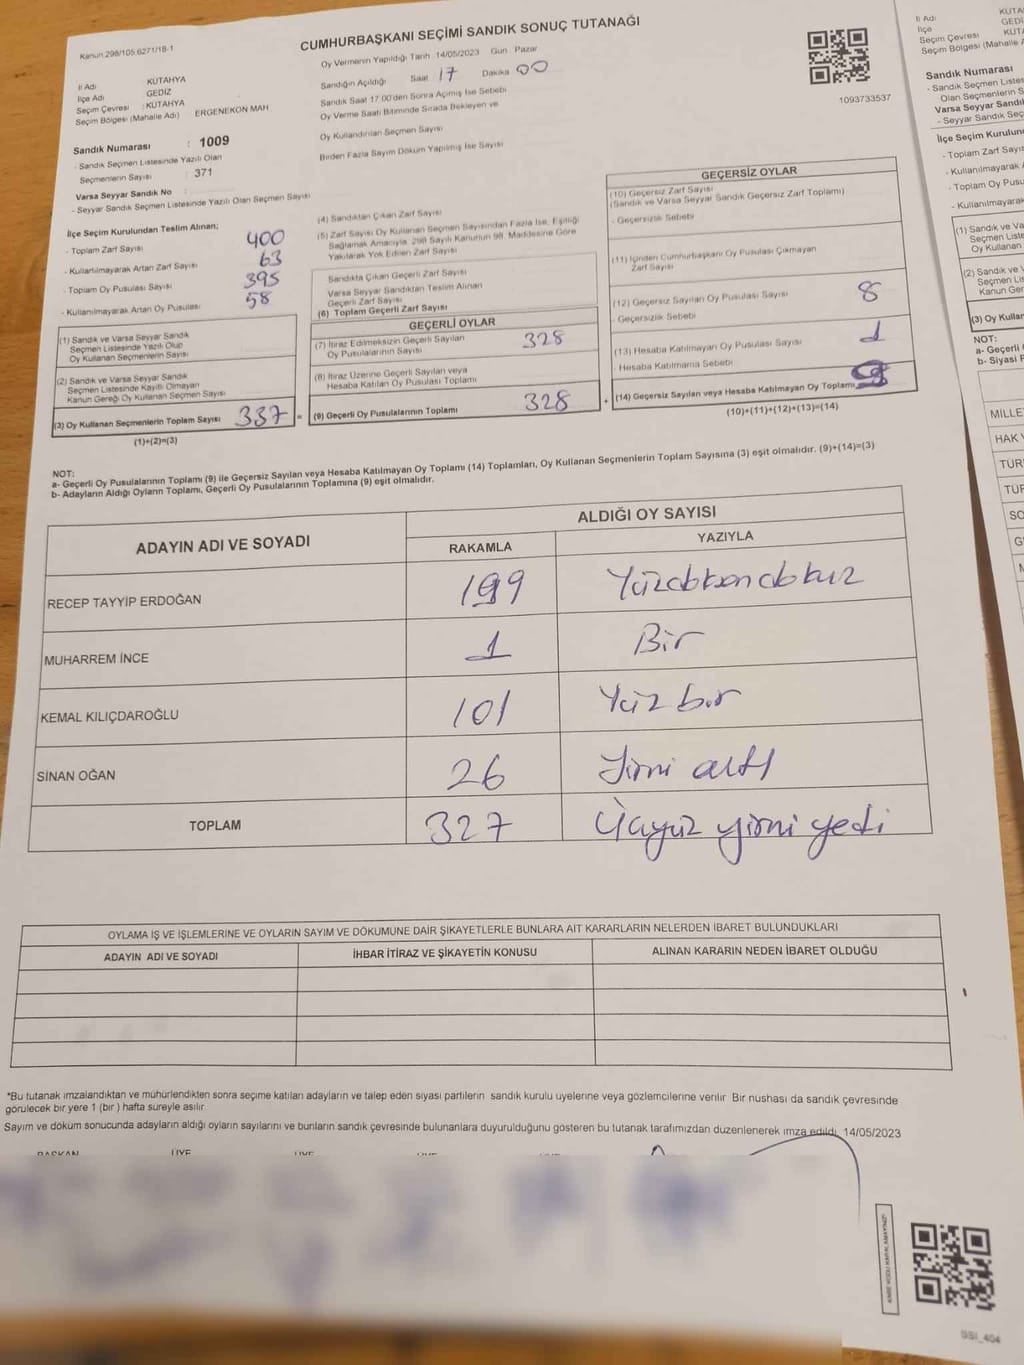 Kanun 298/105 6271/18-1
CUMHURBAŞKANI SEÇİMİ SANDIK SONUÇ TUTANAĞI
İl Adı KUTAHYA
İlçe Adı GEDİZ
Seçim Çevresi : KUTAHYA
Seçim Bölgesi (Mahalle Adı) ERGENEKON MAH
Sandık Numarası : 1009
- Sandık Seçmen Listesinde Yazılı Olan
Seçmenlerin Sayısı : 371
Varsa Seyyar Sandık No :
- Seyyar Sandık Seçmen Listesinde Yazılı Olan Seçmen Sayısı
Oy Vermenin Yapıldığı Tarih 14/05/2023 Gün Pazar
Sandığın Açıldığı Saat 17 Dakika 00
Sandık Saat 17 00'den Sonra Açımış İse Sebebi
Oy Verme Saati Bitiminde Sırada Bekleyen ve
Oy Kullandırılan Seçmen Sayısı
Birden Fazla Sayım Döküm Yapılmış İse Sayısı
1093733537
İlçe Seçim Kurulundan Teslim Alınan;
- Toplam Zarf Sayısı 400
- Kullanılmayarak Artan Zarf Sayısı 63
- Toplam Oy Pusulası Sayısı 395
- Kullanılmayarak Artan Oy Pusulası 58
(1) Sandık ve Varsa Seyyar Sandık
Seçmen Listesinde Yazılı Olup
Oy Kullanan Seçmenlerin Sayısı
(2) Sandık ve Varsa Seyyar Sandık
Seçmen Listesinde Kayıtlı Olmayan
Kanun Gereği Oy Kullanan Seçmen Sayısı
(3) Oy Kullanan Seçmenlerin Toplam Sayısı 337 =
(1)+(2)=(3)
(4) Sandıktan Çıkan Zarf Sayısı
(5) Zarf Sayısı Oy Kullanan Seçmen Sayısından Fazla İse, Eşitliği
Sağlamak Amacıyla, 298 Sayılı Kanunun 98. Maddesine Göre
Yakılarak Yok Edilen Zarf Sayısı
Sandıkta Çıkan Geçerli Zarf Sayısı
Varsa Seyyar Sandıktan Teslim Alınan
Geçerli Zarf Sayısı
(6) Toplam Geçerli Zarf Sayısı
GEÇERLİ OYLAR
(7) İtiraz Edilmeksizin Geçerli Sayılan
Oy Pusulalarının Sayısı 328
(8) İtiraz Üzerine Geçerli Sayılan veya
Hesaba Katılan Oy Pusulası Toplamı
(9) Geçerli Oy Pusulalarının Toplamı 328 +
GEÇERSİZ OYLAR
(10) Geçersiz Zarf Sayısı
(Sandık ve Varsa Seyyar Sandık Geçersiz Zarf Toplamı)
- Geçersizlik Sebebi
(11) İçinden Cumhurbaşkanı Oy Pusulası Çıkmayan
Zarf Sayısı
(12) Geçersiz Sayılan Oy Pusulası Sayısı 8
- Geçersizlik Sebebi
(13) Hesaba Katılmayan Oy Pusulası Sayısı 1
- Hesaba Katılmama Sebebi
(14) Geçersiz Sayılan veya Hesaba Katılmayan Oy Toplamı
(10)+(11)+(12)+(13)=(14)
NOT:
a- Geçerli Oy Pusulalarının Toplamı (9) ile Geçersiz Sayılan veya Hesaba Katılmayan Oy Toplamı (14) Toplamları, Oy Kullanan Seçmenlerin Toplam Sayısına (3) eşit olmalıdır. (9)+(14)=(3)
b- Adayların Aldığı Oyların Toplamı, Geçerli Oy Pusulalarının Toplamına (9) eşit olmalıdır.
ADAYIN ADI VE SOYADI ALDIĞI OY SAYISI
RAKAMLA YAZIYLA
RECEP TAYYİP ERDOĞAN 199 Yüzdoksandokuz
MUHARREM İNCE 1 Bir
KEMAL KILIÇDAROĞLU 101 Yüz bir
SİNAN OĞAN 26 Yirmi altı
TOPLAM 327 Üçyüz yirmi yedi
OYLAMA İŞ VE İŞLEMLERİNE VE OYLARIN SAYIM VE DÖKÜMÜNE DAİR ŞİKAYETLERLE BUNLARA AİT KARARLARIN NELERDEN İBARET BULUNDUKLARI
ADAYIN ADI VE SOYADI İHBAR İTİRAZ VE ŞİKAYETİN KONUSU ALINAN KARARIN NEDEN İBARET OLDUĞU
*Bu tutanak imzalandıktan ve mühürlendikten sonra seçime katılan adayların ve talep eden siyasi partilerin sandık kurulu üyelerine veya gözlemcilerine verilir Bir nüshası da sandık çevresinde
görülecek bir yere 1 (bir) hafta süreyle asılır
Sayım ve döküm sonucunda adayların aldığı oyların sayılarını ve bunların sandık çevresinde bulunanlara duyurulduğunu gösteren bu tutanak tarafımızdan düzenlenerek imza edildi. 14/05/2023
BAŞKAN ÜYE ÜYE
SSI_404
İl Adı
İlçe
Seçim Çevresi
Seçim Bölgesi (Mahalle
Sandık Numarası
- Sandık Seçmen
Olan Seçmenlerin
- Seyyar Sandık
- Toplam Zarf
- Kullanılmayarak
- Toplam Oy
- Kullanılmayarak
(1) Sandık ve
Seçmen
Oy Kullanan
(2) Sandık ve
Seçmen
Kanun
(3) Oy
NOT:
a- Geçerli
b- Siyasi
HAK